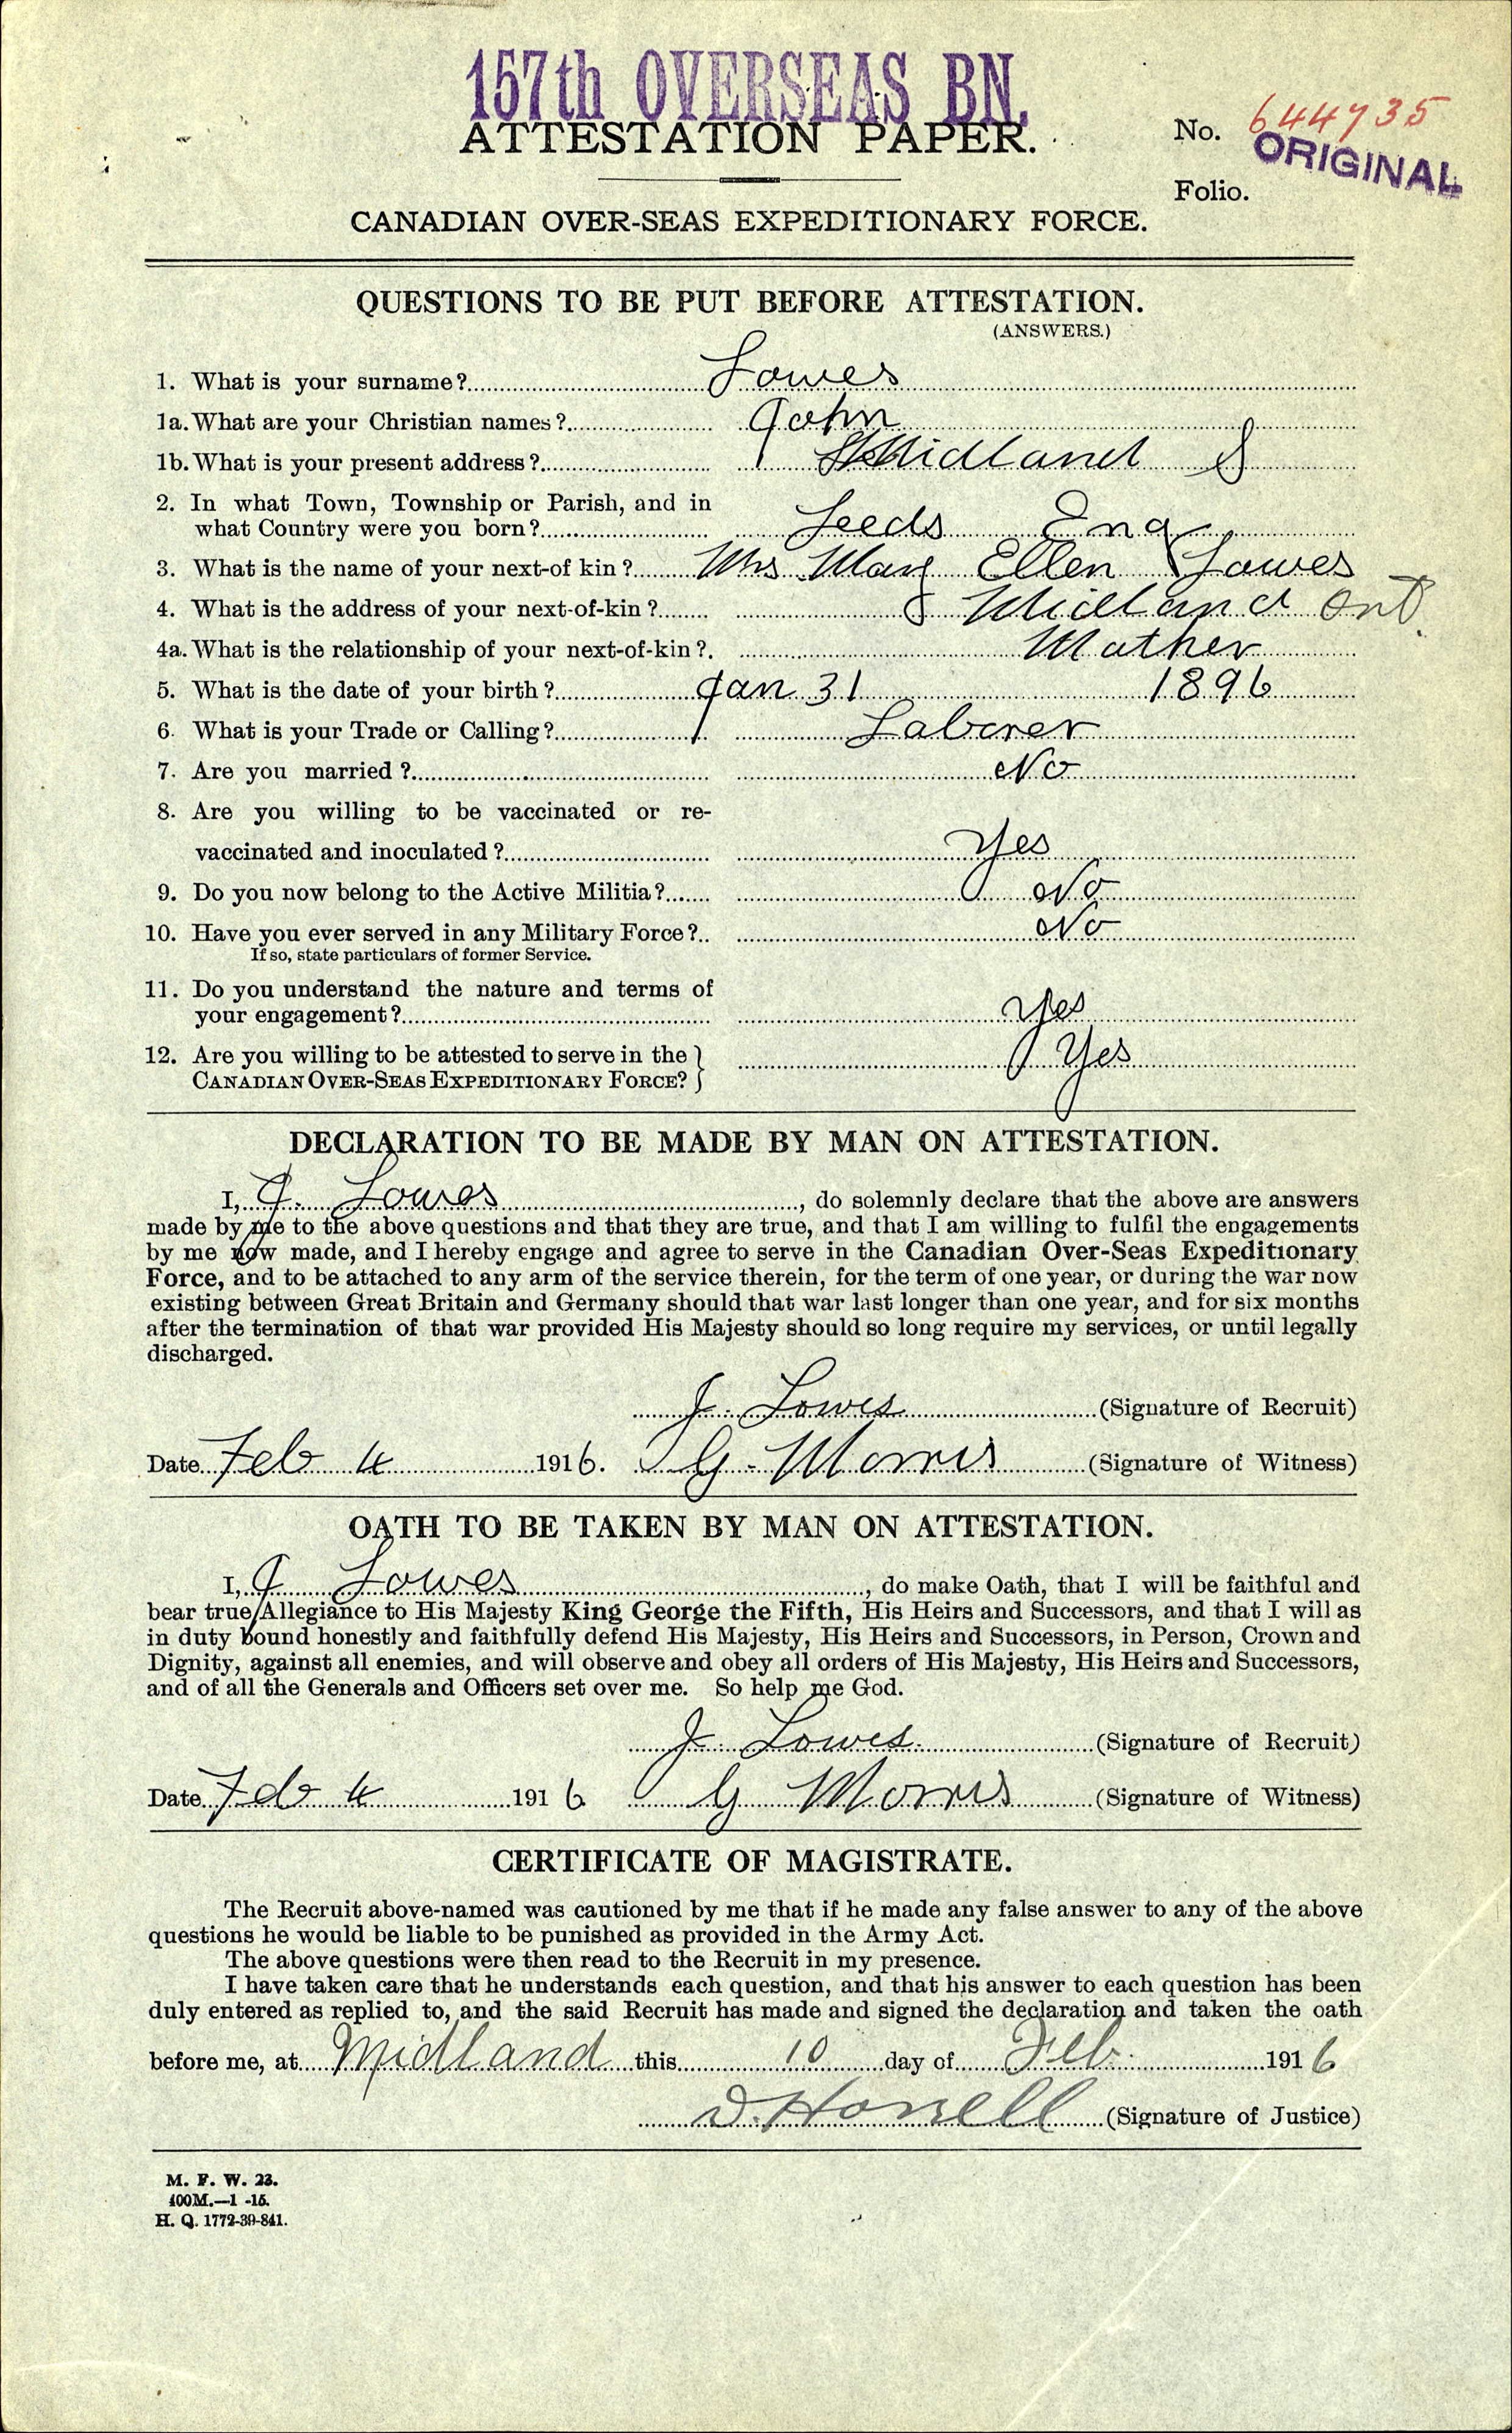 157th OVERSEAS BN.
ATTESTATION PAPER.
No. 644735
ORIGINAL
Folio.
CANADIAN OVER-SEAS EXPEDITIONARY FORCE.
QUESTIONS TO BE PUT BEFORE ATTESTATION.
(ANSWERS.)
1. What is your surname? Lowes
1a. What are your Christian names? John
1b. What is your present address? Midland
2. In what Town, Township or Parish, and in
what Country were you born? Leeds Eng
3. What is the name of your next-of kin? Mrs Mary Ellen Lowes
4. What is the address of your next-of-kin? Midland Ont.
4a. What is the relationship of your next-of-kin? Mother
5. What is the date of your birth? Jan 31 1896
6. What is your Trade or Calling? Laborer
7. Are you married? No
8. Are you willing to be vaccinated or re-
vaccinated and inoculated? Yes
9. Do you now belong to the Active Militia? No
10. Have you ever served in any Military Force? No
If so, state particulars of former Service.
11. Do you understand the nature and terms of
your engagement? Yes
12. Are you willing to be attested to serve in the
CANADIAN OVER-SEAS EXPEDITIONARY FORCE? Yes
DECLARATION TO BE MADE BY MAN ON ATTESTATION.
I, J. Lowes, do solemnly declare that the above are answers
made by me to the above questions and that they are true, and that I am willing to fulfil the engagements
by me now made, and I hereby engage and agree to serve in the Canadian Over-Seas Expeditionary
Force, and to be attached to any arm of the service therein, for the term of one year, or during the war now
existing between Great Britain and Germany should that war last longer than one year, and for six months
after the termination of that war provided His Majesty should so long require my services, or until legally
discharged.
J. Lowes (Signature of Recruit)
Date Feb 4 1916. G. Morris (Signature of Witness)
OATH TO BE TAKEN BY MAN ON ATTESTATION.
I, J Lowes, do make Oath, that I will be faithful and
bear true Allegiance to His Majesty King George the Fifth, His Heirs and Successors, and that I will as
in duty bound honestly and faithfully defend His Majesty, His Heirs and Successors, in Person, Crown and
Dignity, against all enemies, and will observe and obey all orders of His Majesty, His Heirs and Successors,
and of all the Generals and Officers set over me. So help me God.
J. Lowes. (Signature of Recruit)
Date Feb 4 1916 G Morris (Signature of Witness)
CERTIFICATE OF MAGISTRATE.
The Recruit above-named was cautioned by me that if he made any false answer to any of the above
questions he would be liable to be punished as provided in the Army Act.
The above questions were then read to the Recruit in my presence.
I have taken care that he understands each question, and that his answer to each question has been
duly entered as replied to, and the said Recruit has made and signed the declaration and taken the oath
before me, at Midland this 10 day of Feb. 1916
D. (Signature of Justice)
M. F. W. 23.
400M.—1-15.
H. Q. 1772-39-841.